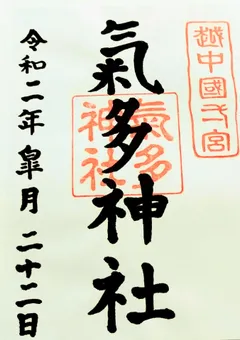 越中國一宮
氣多神社
氣多
神社
令和二年皐月二十二日